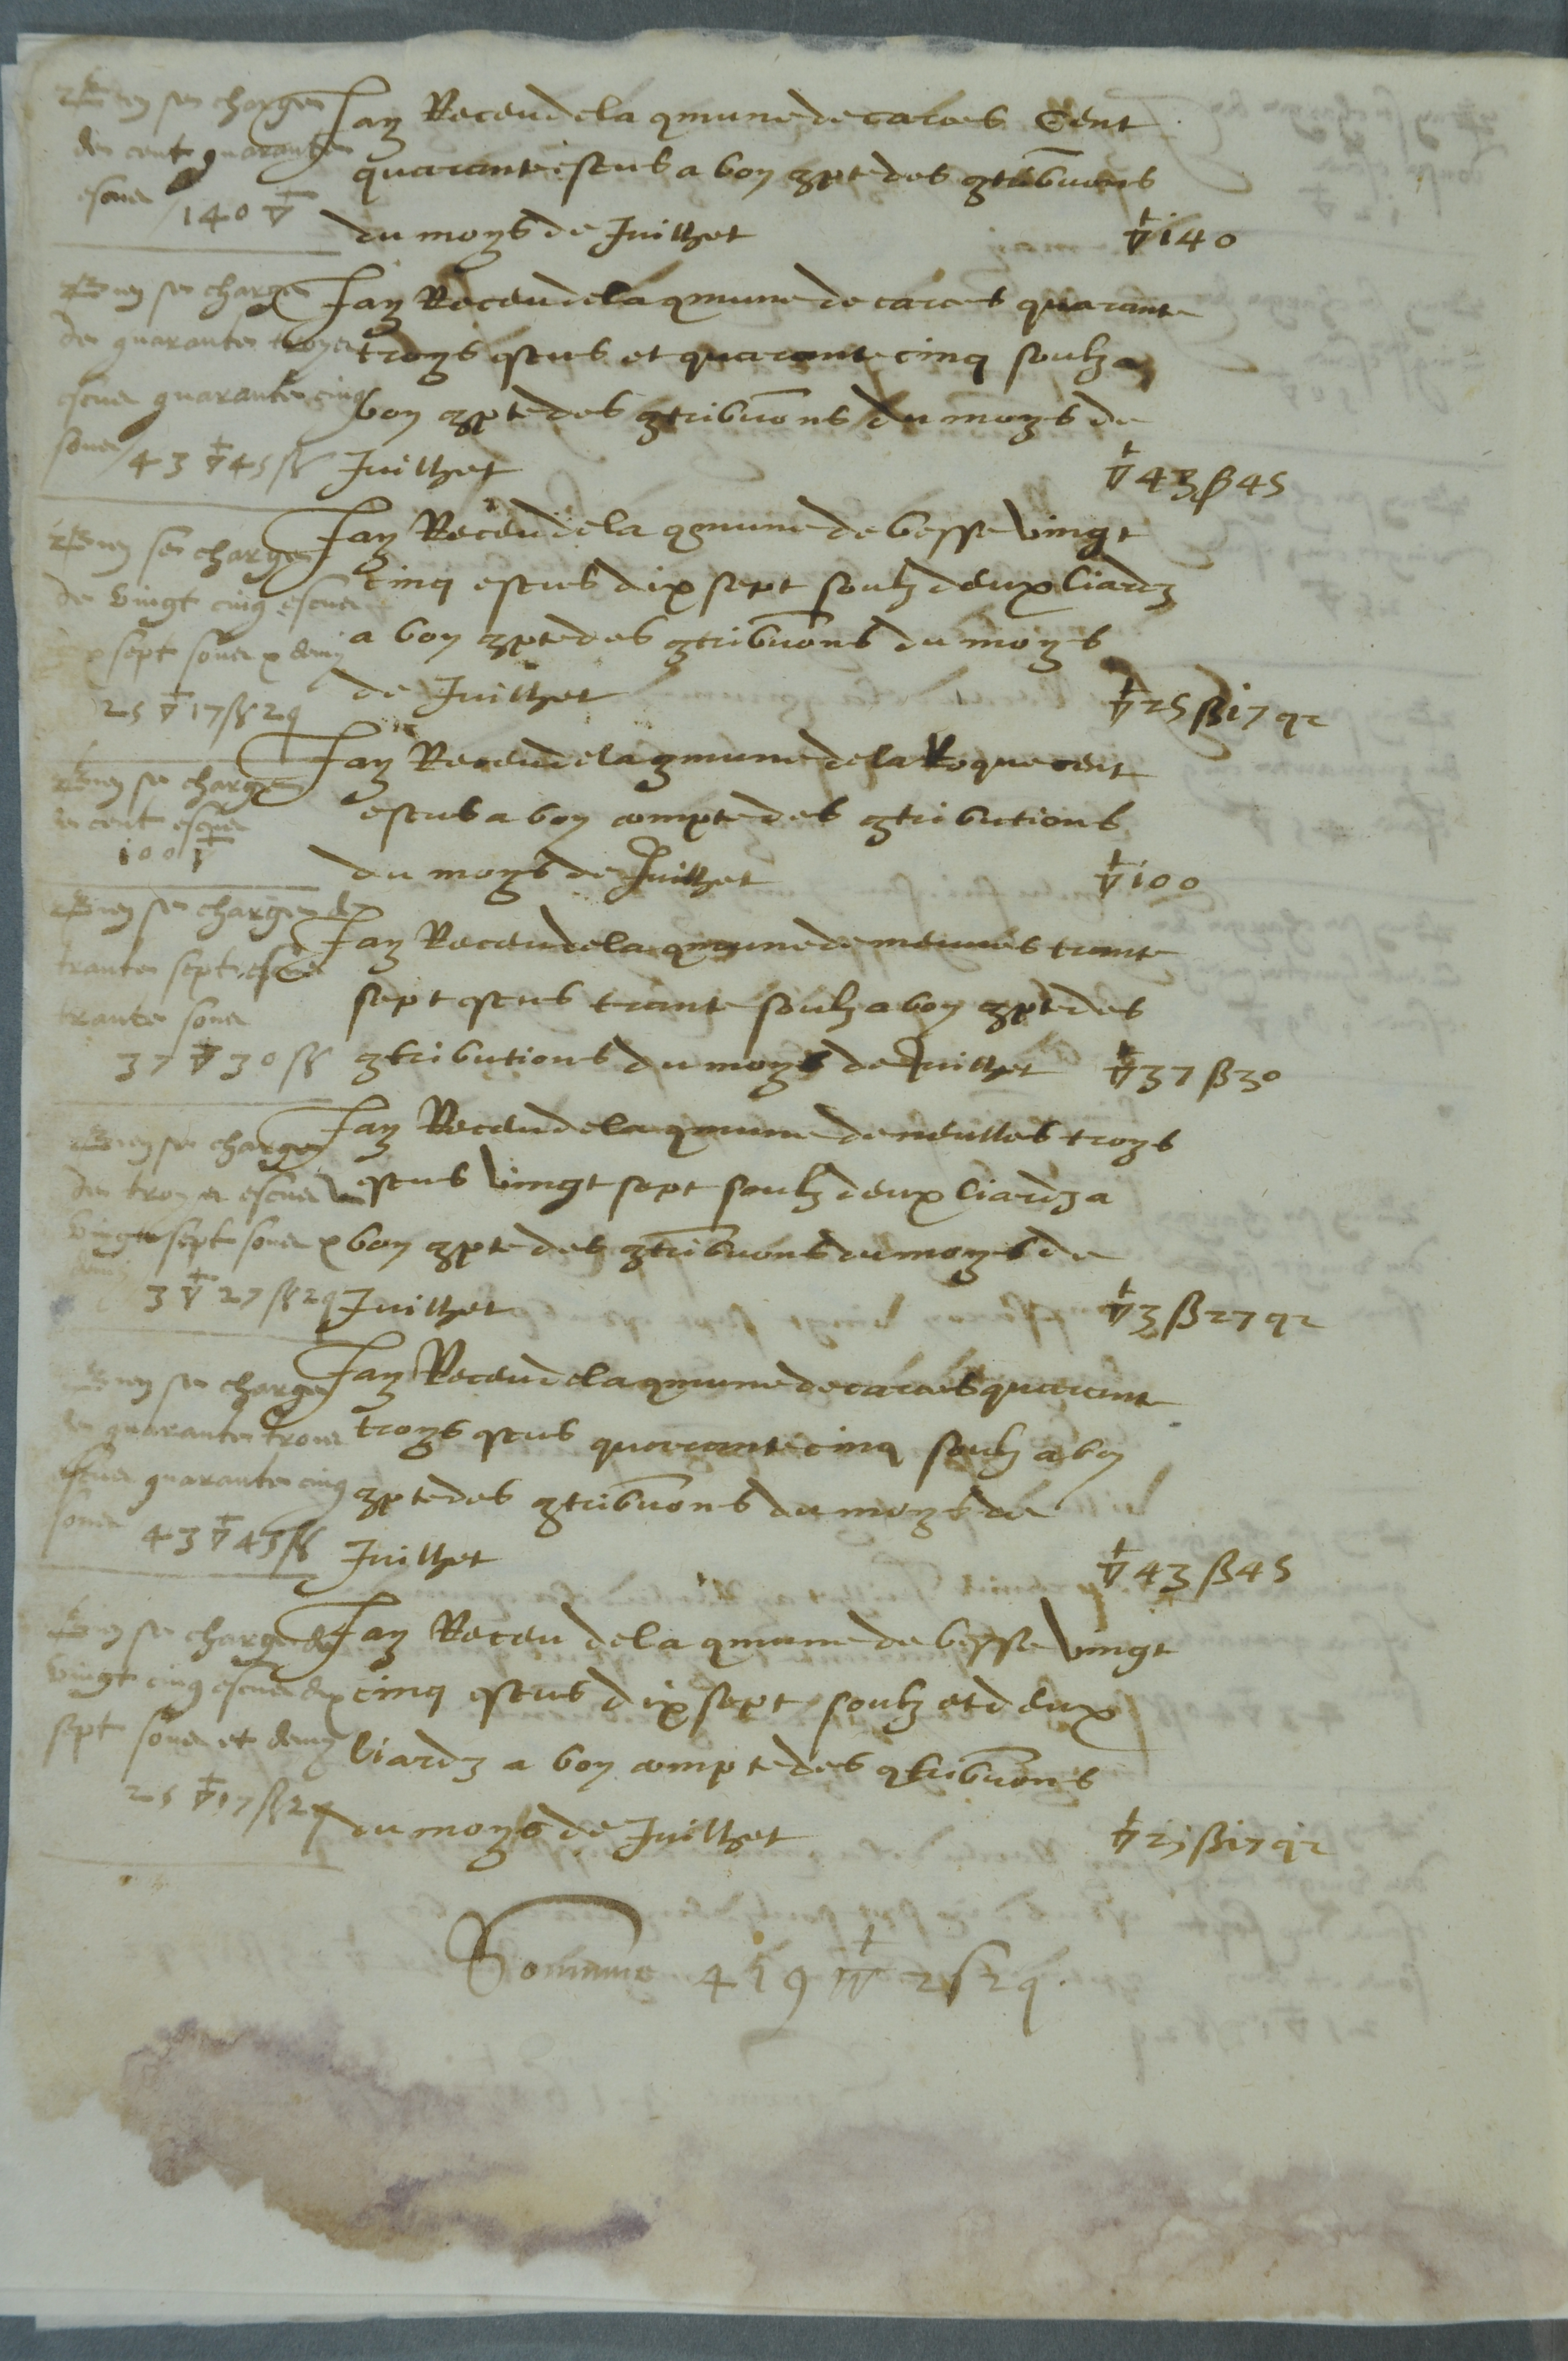 en se charge
de cent quarante
escus 140 ▽
Jay Receu de la qmune de carces Cent
quarante escus a bon qpte des qtribuons
du moys de Juilhet ▽ 140
en se charge
de quarante troys
escus quarante cinq
soux 43 ▽ 45 ß
Jay Receu de la qmune de carces quarante
troys escus et quarante cinq soulz a
bon qpte des qtribuons du moys de
Juilhet ▽ 43 ß 45
en se charge
de vingt cinq escus
x sept soux x demy
25 ▽ 17 ß 2 q
Jay Receu de la qmune de besse vingt
cinq escus dix sept soulz deux liardz
a bon qpte des qtribuons du moys
de Juilhet ▽ 25 ß 17 q 2
en se charge
de cent escus
100 ▽
Jay Receu de la qmune de la Roque cent
escus a bon compte des qtributions
du moys de Juilhet ▽ 100
en se charge de
trante sept escus
trante soux
37 ▽ 30 ß
Jay Receu de la qmune de meunes trante
sept escus trante soulz a bon qpte des
qtributions du moys de Juilhet ▽ 37 ß 30
en se charge
de troys escus
vingt sept soux x
demy
3 ▽ 27 ß 2 q
Jay Receu de la qmune de neulles troys
escus vingt sept soulz deux liardz a
bon qpte des qtribuons du moys de
Juilhet ▽ 3 ß 27 q 2
en se charge
de quarante troys
escus quarante cinq
soux 43 ▽ 45 ß
Jay Receu de la qmune de carces quarante
troys escus quarante cinq soulz a bon
qpte des qtribuons du moys de
Juilhet ▽ 43 ß 45
en se charge de
vingt cinq escus dix
sept soux et demy
25 ▽ 17 ß 2 q
Jay Receu de la qmune de besse vingt
cinq escus dix sept soulz et deux
liardz a bon compte des qtribuons
du moys de Juilhet ▽ 25 ß 17 q 2
Somme 419 ▽ 2 s 2 q